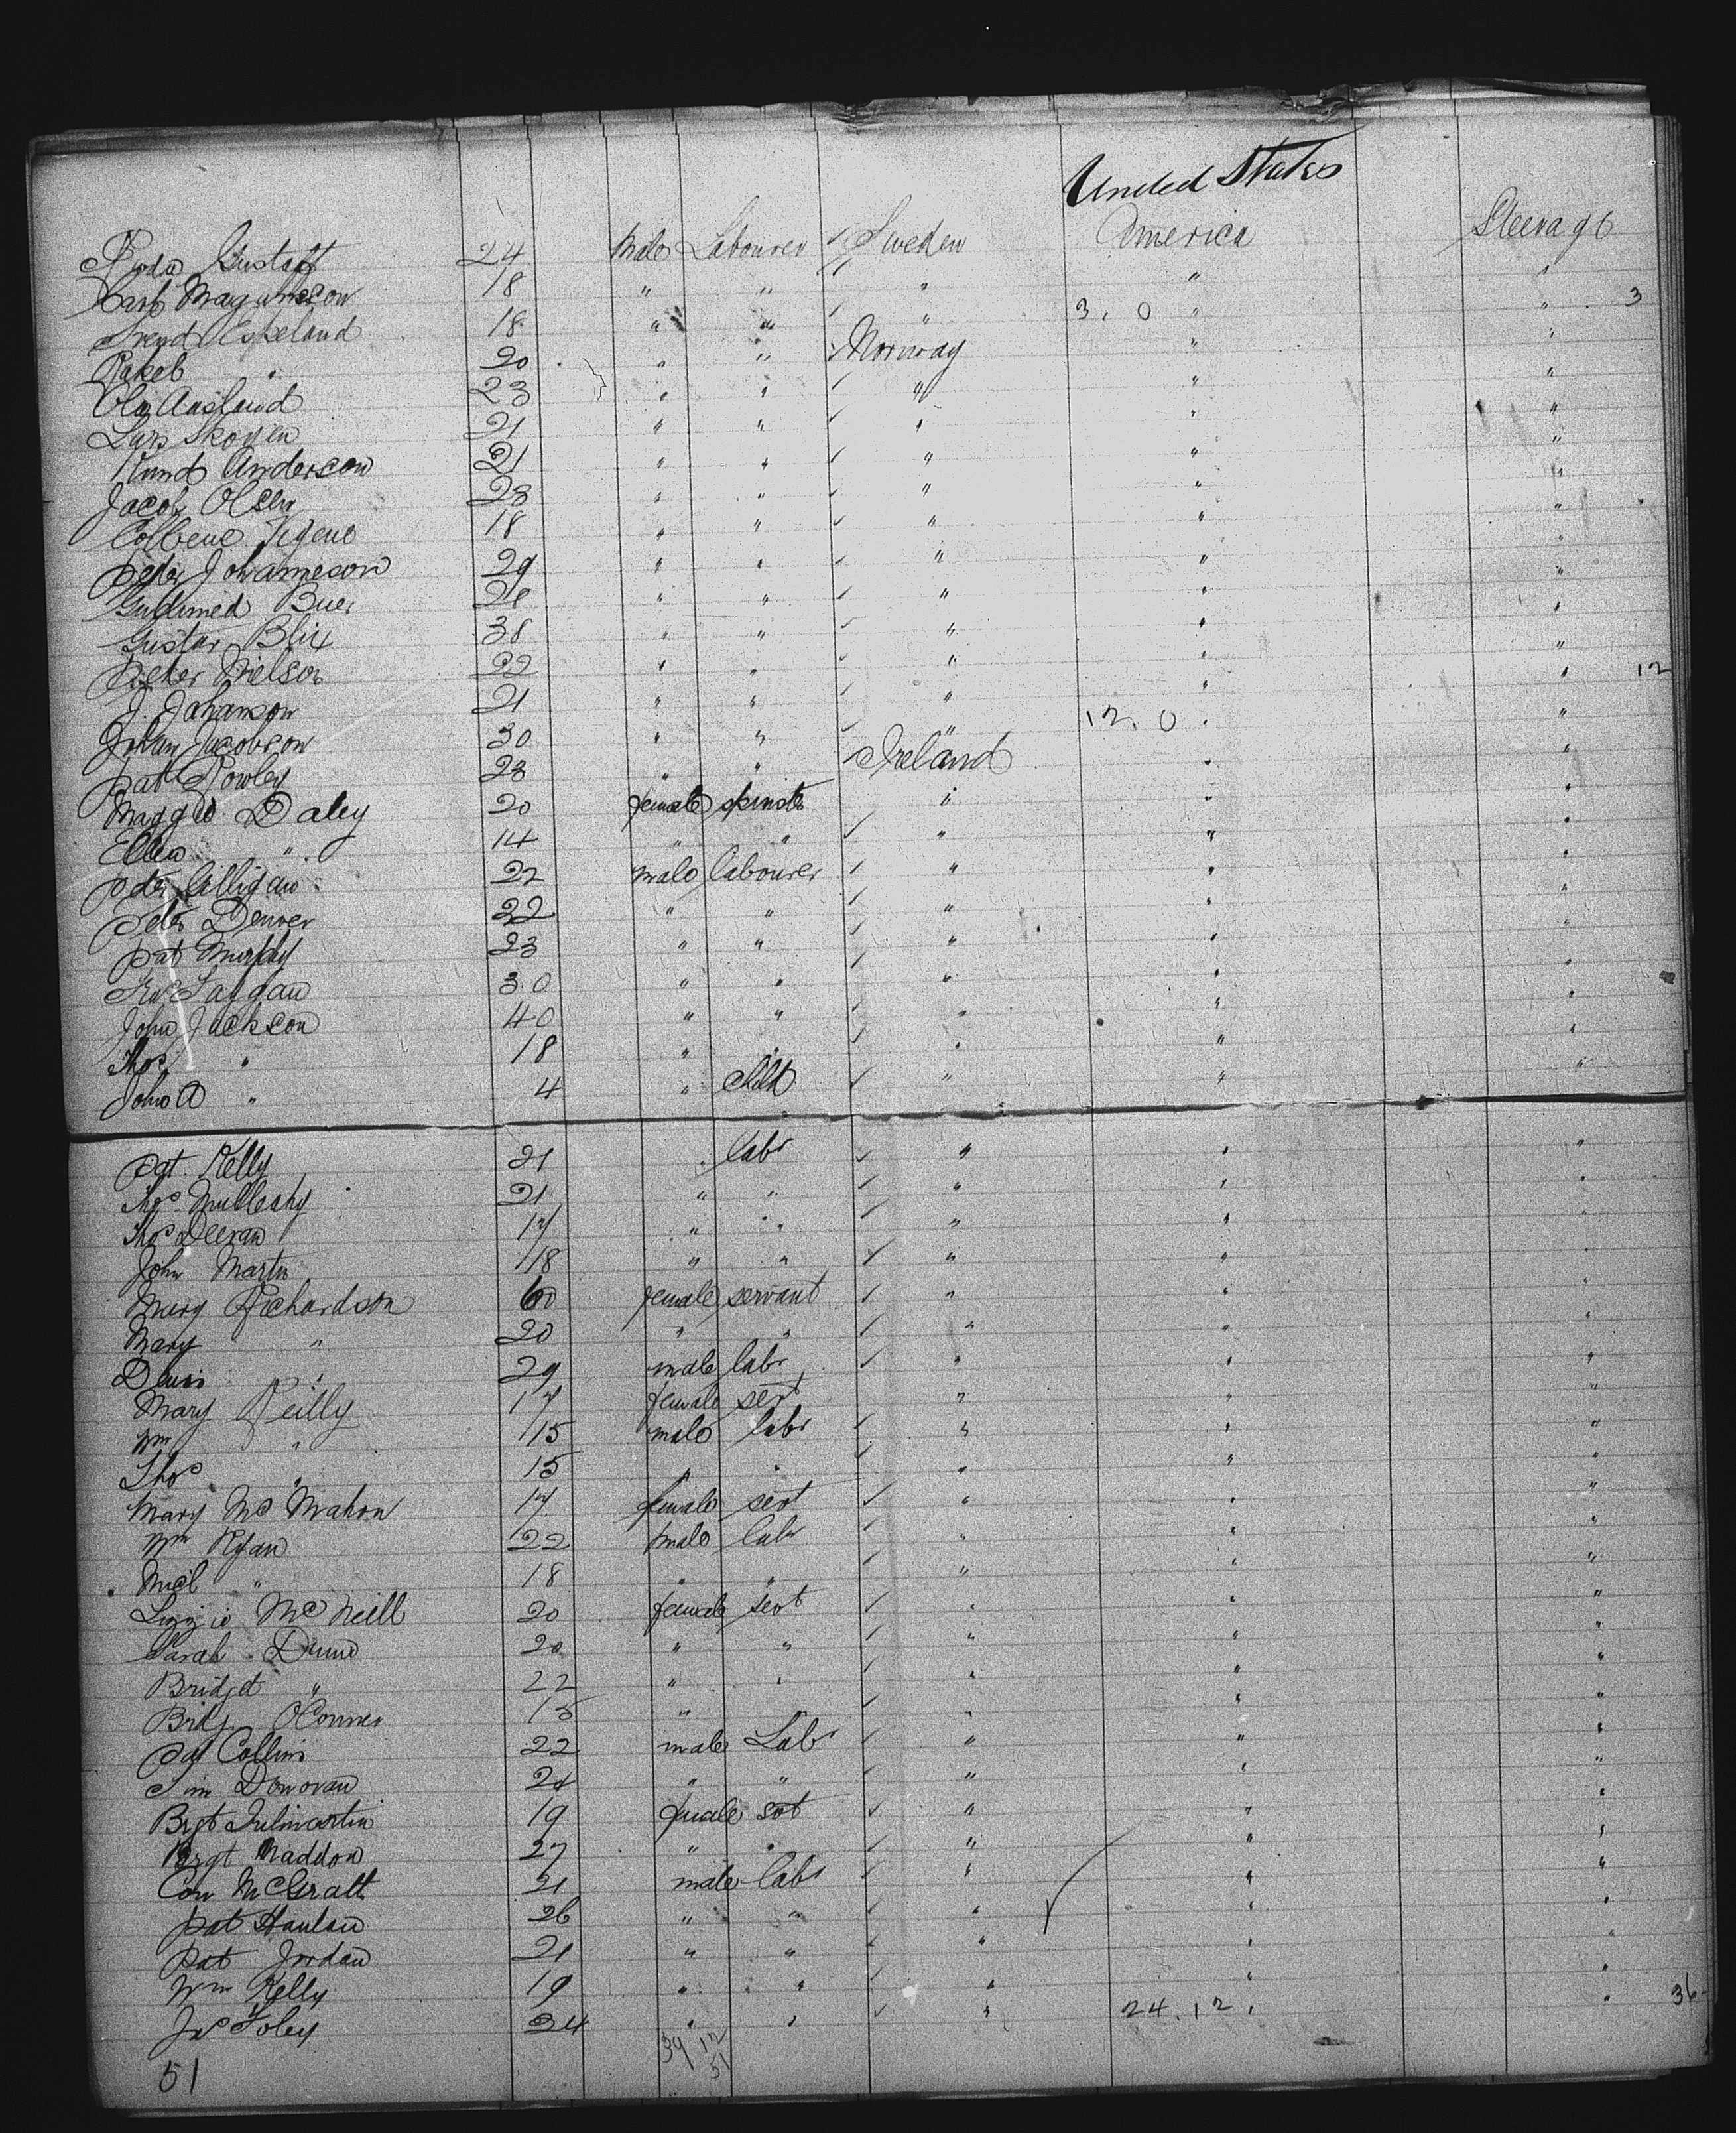 United States
Gustaff 24 Male Labourer ✓ Sweden America Steerage
Magnusson 18 " " ✓ " " "
Espeland 18 " " ✓ " 3. 0 " " 3
Rakel " 20 " " ✓ Norway " "
Ola Aasland 23 " " ✓ " " "
Lars Skogen 21 " " ✓ " " "
Knud Anderson 21 " " ✓ " " "
Jacob Olsen 28 " " ✓ " " "
18 " " ✓ " " "
Peder Johanneson 29 " " ✓ " " "
Buer " " ✓ " " "
Gustav Blix 38 " " ✓ " " "
Peter Nielson 22 " " ✓ " " "
J. Johanson 21 " " ✓ " " " 12
Johan Jacobson 30 " " ✓ " 12. 0 " "
Pat Rowley 23 " " ✓ Ireland " "
Maggie Daley 20 female spinster " " "
Ellen " 14 " " ✓ " " "
Peter Gilligan 22 male labourer ✓ " " "
Peter Denver 22 " " ✓ " " "
Pat Murphy 23 " " ✓ " " "
30 " " ✓ " " "
John Jackson 40 " " ✓ " " "
Thos " 18 " " ✓ " " "
John A " 4 " child ✓ " " "
Pat. Kelly 21 " labr ✓ " " "
Thos Mulleahy 21 " " ✓ " " "
Thos Deeran 17 " " ✓ " " "
John Martin 18 " " ✓ " " "
Mary Richardson 60 female servant ✓ " " "
Mary " 20 " " ✓ " " "
" 29 male labr ✓ " " "
Mary Reilly 17 female sert " " "
Wm " 15 male labr ✓ " " "
Thos " 15 " " ✓ " " "
Mary McMahon 17 female sert ✓ " " "
Wm Ryan 22 male labr ✓ " " "
Micl " 18 " " ✓ " " "
Lizzie McNeill 20 female sert ✓ " " "
Sarah Dunn 20 " " ✓ " " "
Bridget " 22 " " ✓ " " "
Bridg. OConner 15 " ✓ " " "
Pat Collins 22 male Labr ✓ " " "
Tim Donovan 24 " " ✓ " " "
Brgt Gilmartin 19 female sert ✓ " " "
Brgt Maddon 27 " " ✓ " " "
Con McGratt 21 male labr ✓ " " "
Pat Hanlan 26 " " ✓ " " "
Pat Jordan 21 " " ✓ " " "
Wm Kelly 19 " " ✓ " " "
Jno Foley 24 " " ✓ " 24. 12. " " 36
39 12
51 51